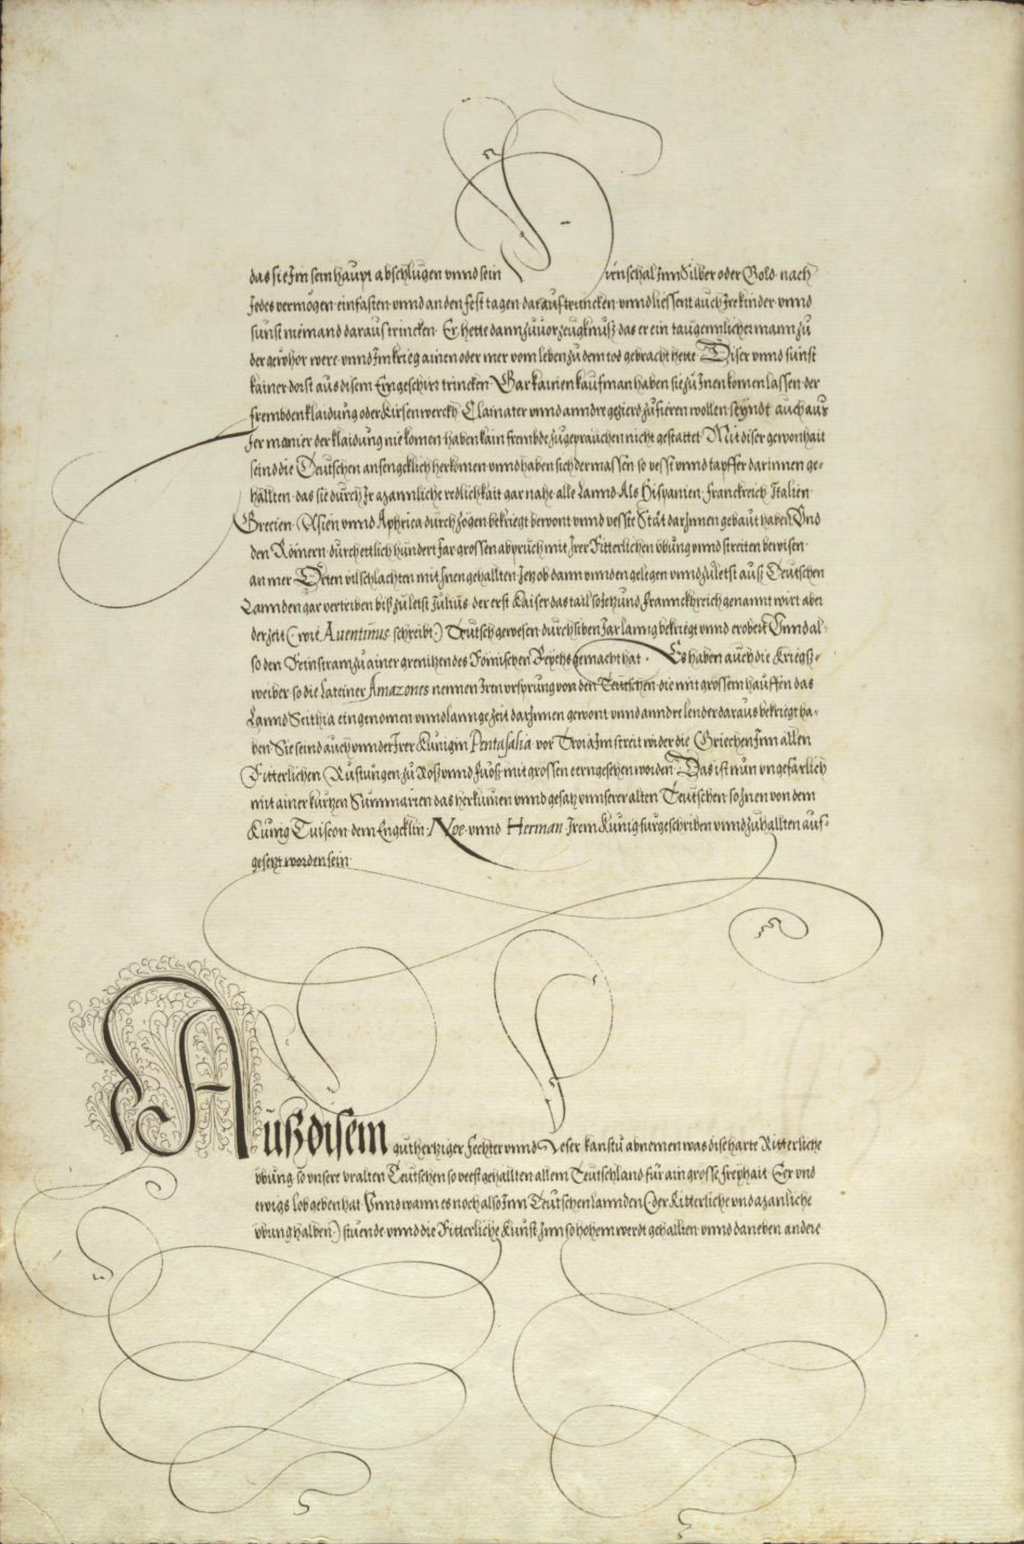 das sie Im sein haupt abschlugen vnnd sein Hirnschal Inn Silber oder Gold nach
Jedes vermögen einfasten vnnd an den fest tagen daraus trincken vnnd liessent auch Ire kinder vnnd
sunst niemand daraus trincken Er hette dann zuuor zeugknuß das er ein taugennlicher mann zu
der gewhör were vnnd Im krieg ainen oder mer vom leben zu dem tod gebracht hette Diser vnnd sunst
kainer dorst aus disem Eingeschirr trincken Gar kainen kaufman haben sie zu Inen komen lassen der
frembden klaidung oder Kirsenwerckh Clainater vnnd anndre gezierd zufieren wollen seyndt auch aus
Jer manier der klaidung nie komen haben kain frembde zugeprauchen nicht gestattet Mit diser gewonhait
seind die Deutschen anfengcklich herkomen vnnd haben sich dermassen so vesst vnnd tapffer darinnen ge-
hallten das sie durch Ir mannliche redlichkait gar nahe alle Lannd Als Hispanien Franckreich Italien
Grecien Asien vnnd Aphrica durchzogen bekriegt bewont vnnd vesste Stät darInnen gebaut haben Vnd
den Römern durch ettlich hundert Jar grossen abpruch mit Irer Ritterlichen vbung vnnd streiten bewisen
an mer Orten vil schlachten mit Inen gehallten Ie ob dann vnnden gelegen vnnd zuletst aus Deutschen
Lannden gar vertriben biß zuletst Julius der erst Kaiser das tail so Ietzund FranncKhreich genannt wirt aber
der zeit (wie Auentinus schreibt) Teutsch gewesen durch siben Jar lanng bekriegt vnnd erobert Vnnd al-
so den Reinstram zu ainer grenitzen des Römischen Reychs gemacht hat. Es haben auch die Kriegß-
weiber so die Lateiner Amazones nennen Iren vrsprung von den Teutschen die mit grossem hauffen das
Lannd Scithia eingenomen vnnd lannge zeit darInnen gewont vnnd anndre lender daraus bekriegt ha-
ben Sie seind auch vnnder Irer Kunigin Pentasalia vor Troia Im streit wider die Griechen Inn allen
Ritterlichen Rustungen zu Roß vnnd fuoß mit grossen eern gesehen worden Das ist nun vngefarlich
mit ainer kurtzen Summarien das herkumen vnnd gesatz vnnserer alten Teutschen so Inen von dem
Kunig Tuiscon dem Engcklin Noe vnnd Herman Irem Kunig furgeschriben vnnd zuhallten auf-
gesetzt worden sein
Auß disem guthertziger Fechter vnnd Leser kanstu abnemen was dise harte Ritterliche
vbung so vnsere vralten Teutschen so veest gehallten allem Teutschland für ain grosse freyhait Eer vnd
ewigs lob geben hat Vnnd wann es noch also Inn Teutschen lannden (der Ritterliche vnd manliche
vbung halben) stuende vnnd die Ritterliche Kunst Inn so hohem werdt gehallten vnnd daneben andere